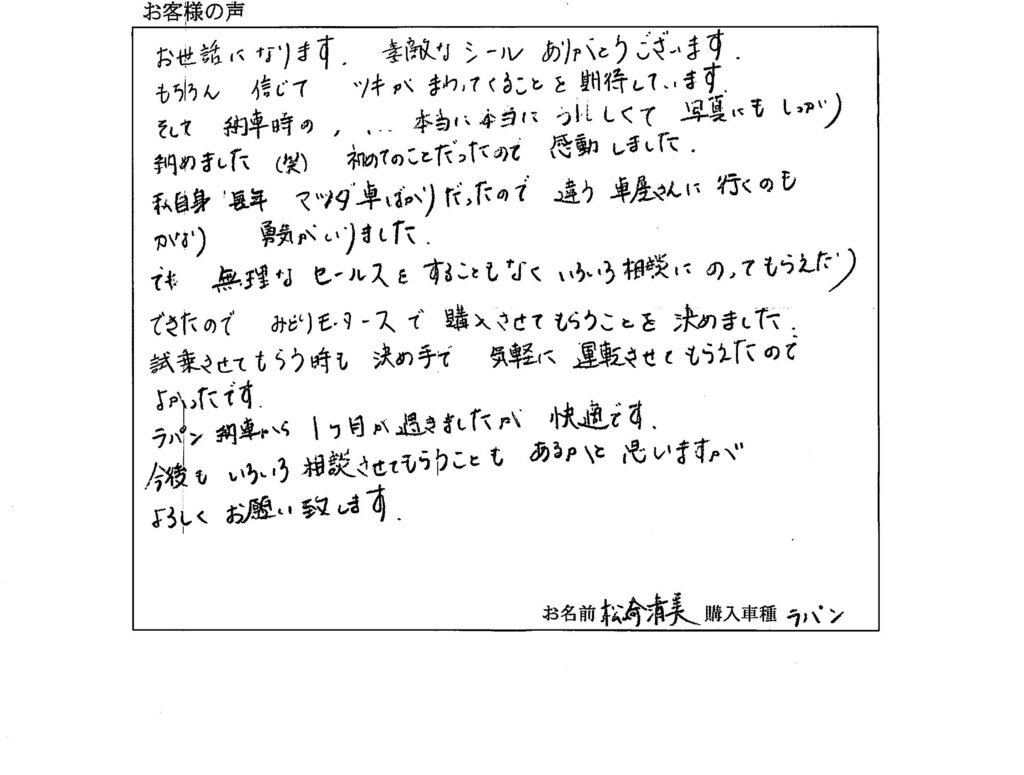 お客様の声
お世話になります. 素敵なシール ありがとうございます.
もちろん 信じて ツキが まわってくることを期待しています.
そして 納車時の, ... 本当に本当に うれしくて 写真にも しっかり
納めました (笑) 初めてのことだったので 感動しました.
私自身 長年 マツダ車ばかりだったので 違う 車屋さんに行くのも
かなり 勇気がいりました.
でも 無理なセールスをすることもなくいろいろ相談にのってもらえたり
できたので みどりモータースで 購入させてもらうことを 決めました.
試乗させてもらう時も 決め手で 気軽に 運転させてもらえたので
よかったです.
ラパン 納車から 1ヶ月が過ぎましたが 快適です.
今後も いろいろ 相談させてもらうことも あるかと 思いますが
よろしくお願い致します.
お名前 松崎清美 購入車種 ラパン